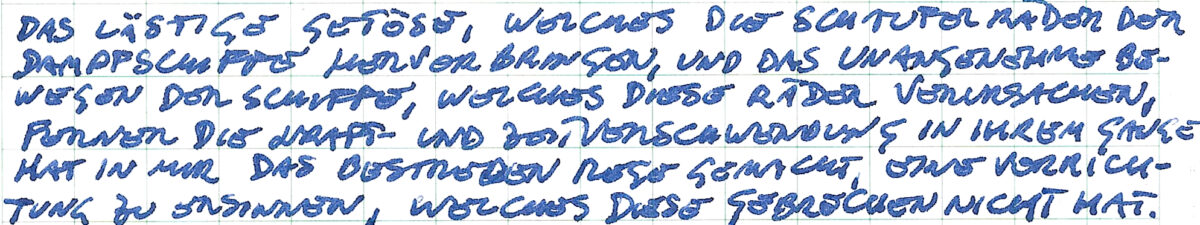 DAS LÄSTIGE GETÖSE, WELCHES DIE SCHAUFELRÄDER DER
DAMPFSCHIFFE HERVORBRINGEN, UND DAS UNANGENEHME BE-
WEGEN DER SCHIFFE, WELCHES DIESE RÄDER VERURSACHEN,
FERNER DIE KRAFT- UND ZEITVERSCHWENDUNG IN IHREM GANGE
HAT IN MIR DAS BESTREBEN REGE GEMACHT, EINE VORRICH-
TUNG ZU ERSINNEN, WELCHES DIESE GEBRECHEN NICHT HAT.